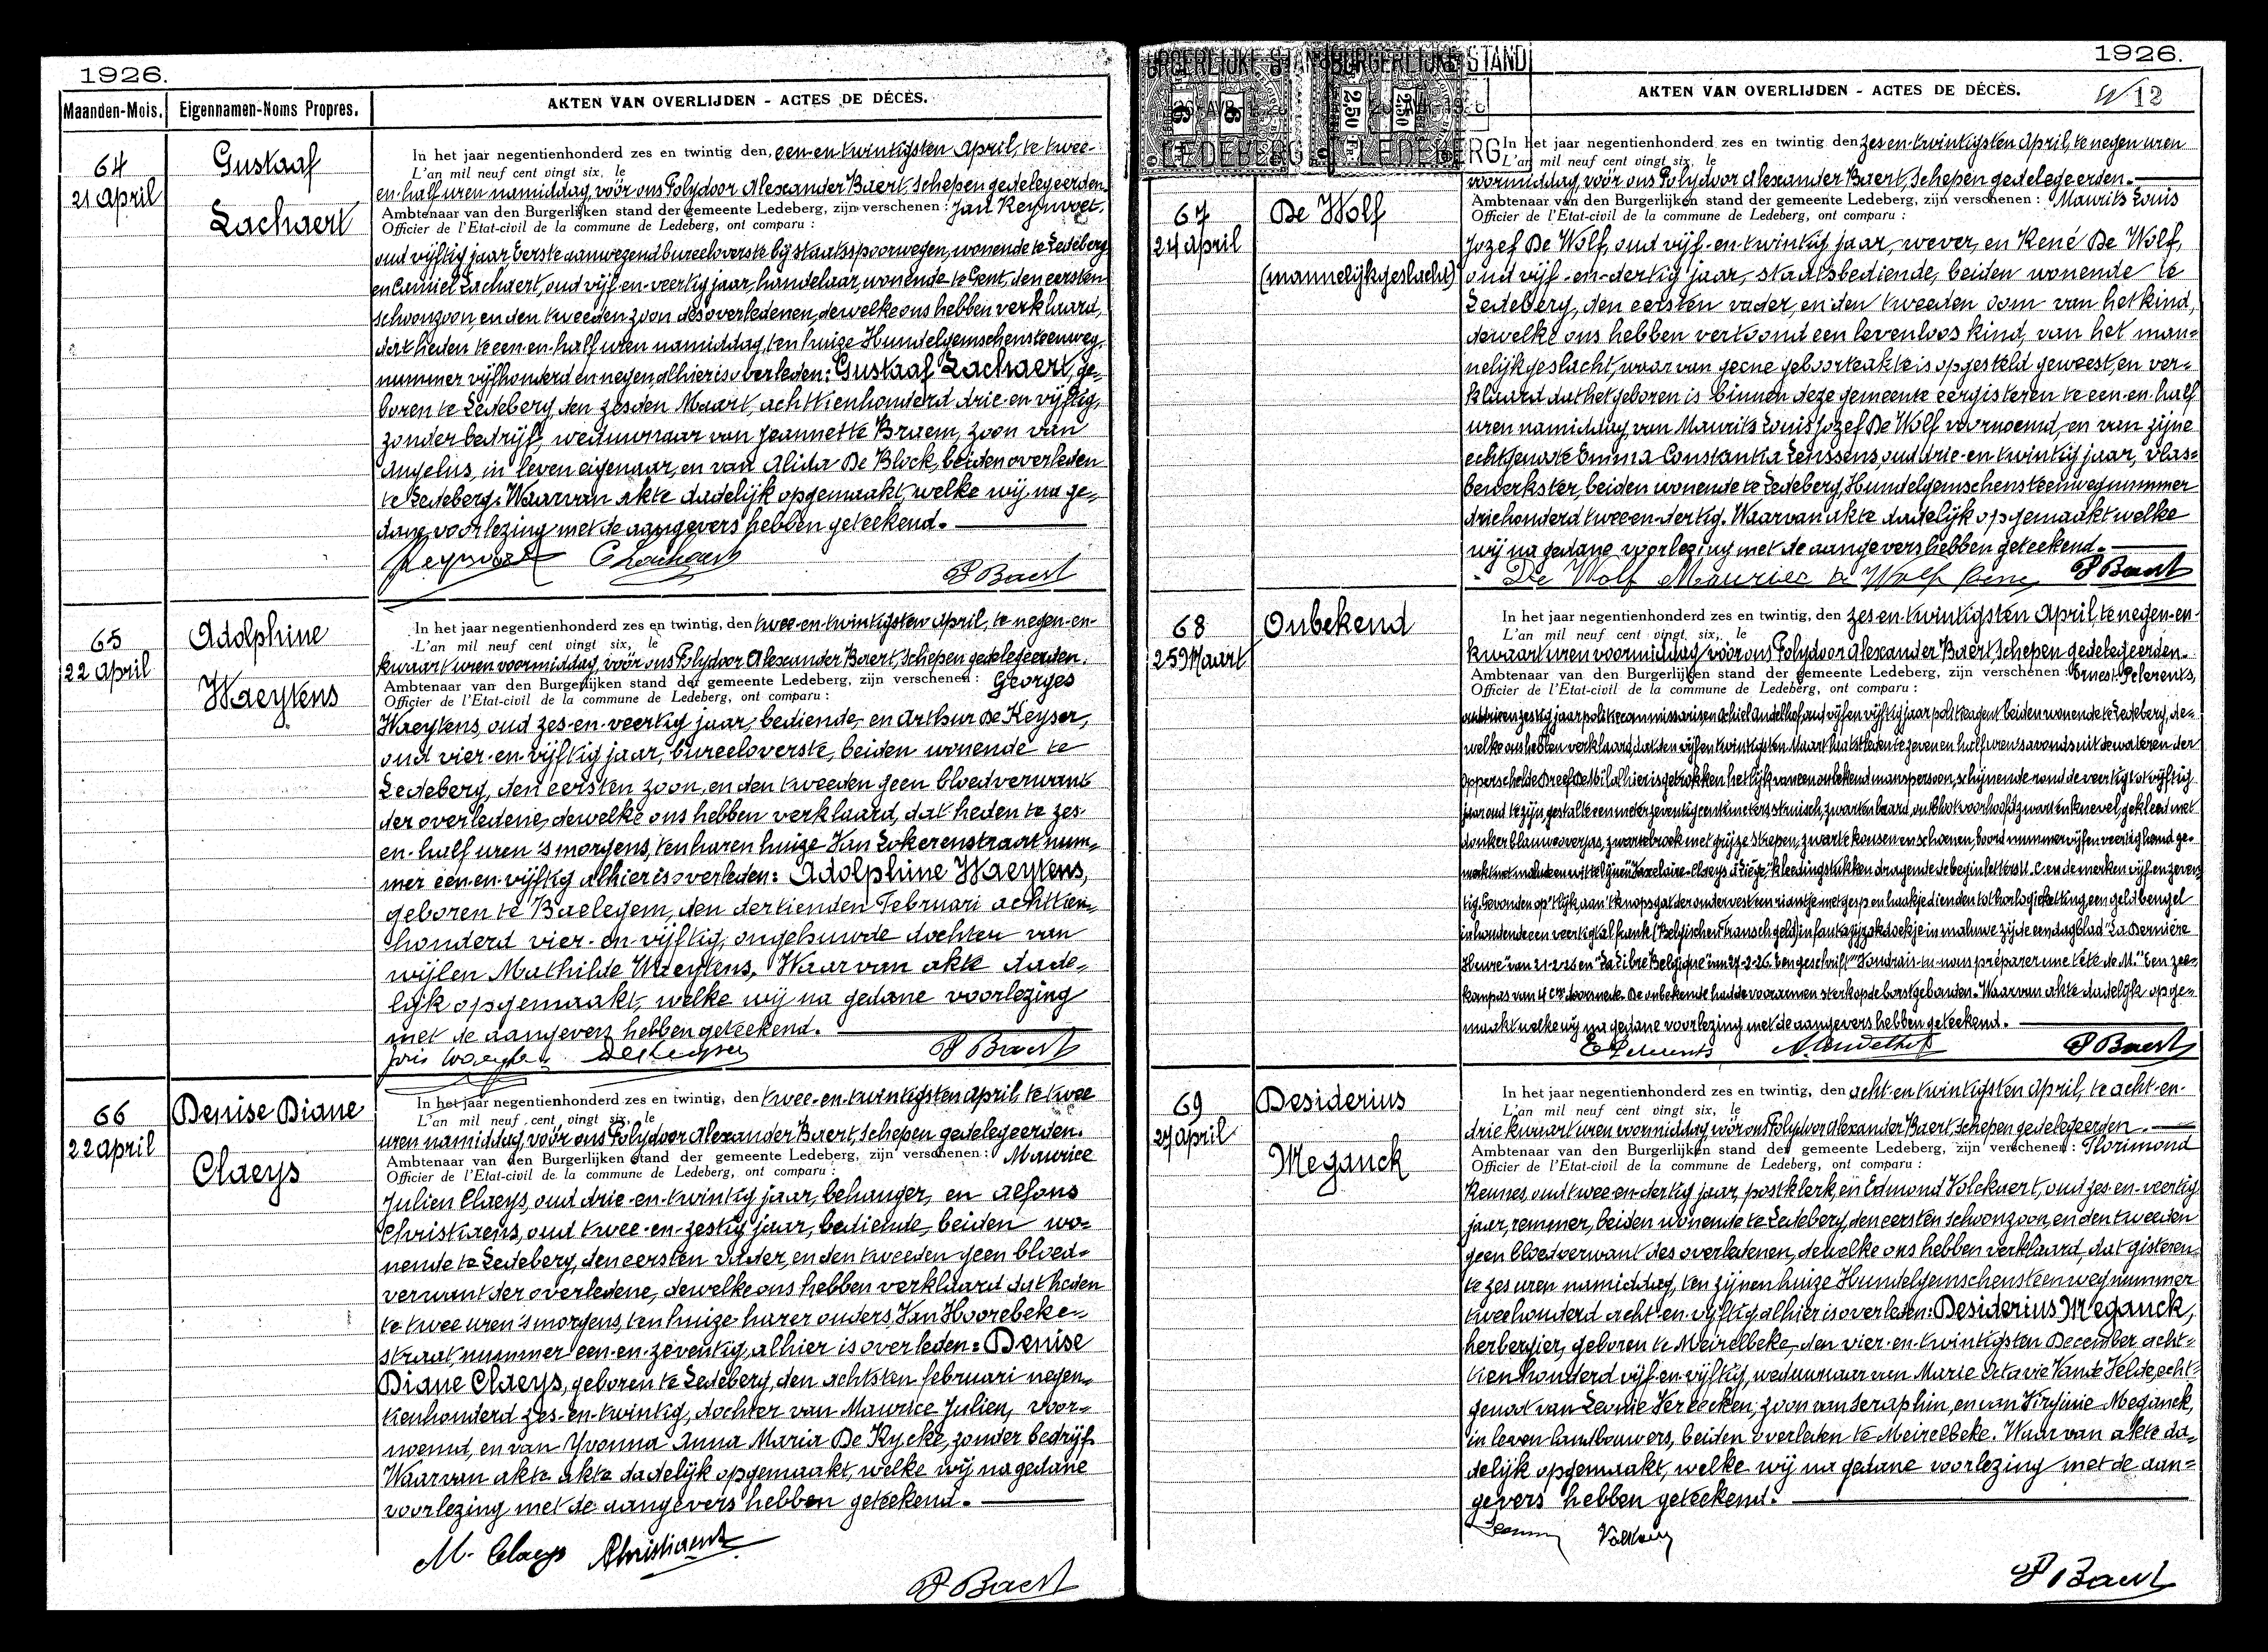 1926.
Maanden-Mois.
Eigennamen-Noms Propres.
AKTEN VAN OVERLIJDEN - ACTES DE DÉCÈS.
64
21 April
Gustaaf
Lachaert
In het jaar negentienhonderd zes en twintig den, een-en-twintigsten April, te twee-
L'an mil neuf cent vingt six, le
en-half uren namiddag, vóór ons Polydoor Alexander Baert, Schepen gedelegeerden.
Ambtenaar van den Burgerlijken stand der gemeente Ledeberg, zijn verschenen : Jan Reynvoet,
Officier de l'Etat-civil de la commune de Ledeberg, ont comparu :
oud vijftig jaar Eerste aanwezend bureeloverste bij staatsspoorwegen, wonende te Ledeberg
en Camiel Lachaert, oud vijf-en-veertig jaar, handelaar, wonende te Gent, den eersten
schoonzoon, en den tweeden zoon des overledenen, dewelke ons hebben verklaard,
dat heden te een en-half uren namiddag, ten huize Hundelgemschensteenweg,
nummer vijfhonderd en negen, alhier is overleden: Gustaaf Lachaert, ge-
boren te Ledeberg, den zesden Maart, achttienhonderd drie-en-vijftig,
zonder bedrijf, weduwnaar van Jeannette Braem, zoon van
Angelus, in leven eigenaar, en van Alida De Block, beiden overleden
te Ledeberg. Waarvan akte dadelijk opgemaakt, welke wij na ge-
dane voorlezing met de aangevers hebben geteekend.
Reynvoet C Lachaert
P Baert
65
22 April
Adolphine
Waeytens
In het jaar negentienhonderd zes en twintig, den twee-en-twintigsten April, te negen-en-
L'an mil neuf cent vingt six, le
kwaart uren voormiddag, vóór ons Polydoor Alexander Baert, Schepen gedelegeerden.
Ambtenaar van den Burgerlijken stand der gemeente Ledeberg, zijn verschenen : Georges
Officier de l'Etat-civil de la commune de Ledeberg, ont comparu :
Waeytens, oud zes-en-veertig jaar, bediende, en Arthur De Keyser,
oud vier-en-vijftig jaar, bureeloverste, beiden wonende te
Ledeberg, den eersten zoon, en den tweeden geen bloedverwant
der overledene, dewelke ons hebben verklaard, dat heden te zes-
en-half uren 's morgens, ten haren huize Van Lokerenstraat num-
mer een-en-vijftig alhier is overleden: Adolphine Waeytens,
geboren te Baelegem, den dertienden Februari achttien-
honderd vier-en-vijftig, ongehuwde dochter van
wijlen Mathilde Waeytens. Waarvan akte dade-
lijk opgemaakt, welke wij na gedane voorlezing
met de aangevers hebben geteekend.
P Baert
66
22 April
Denise Diane
Claeys
In het jaar negentienhonderd zes en twintig, den twee-en-twintigsten April, te twee
L'an mil neuf cent vingt six, le
uren namiddag, vóór ons Polydoor Alexander Baert, Schepen gedelegeerden.
Ambtenaar van den Burgerlijken stand der gemeente Ledeberg, zijn verschenen : Maurice
Officier de l'Etat-civil de la commune de Ledeberg, ont comparu :
Julien Claeys, oud drie-en-twintig jaar, behanger, en Alfons
Christiaens, oud twee-en-zestig jaar, bediende, beiden wo-
nende te Ledeberg, den eersten vader, en den tweeden geen bloed-
verwant der overledene, dewelke ons hebben verklaard dat heden
te twee uren 's morgens, ten huize harer ouders, Van Hoorebeke-
straat, nummer een-en-zeventig, alhier is overleden: Denise
Diane Claeys, geboren te Ledeberg, den achtsten februari negen-
tienhonderd zes-en-twintig, dochter van Maurice Julien, voor-
noemd, en van Yvonna Anna Maria De Rycke, zonder bedrijf.
Waarvan akte akte dadelijk opgemaakt, welke wij na gedane
voorlezing met de aangevers hebben geteekend.
M. Claeys Christiaens
P Baert
1926.
BURGERLIJKE STAND
BURGERLIJKE STAND
2,50
2,50
LEDEBERG
LEDEBERG
AKTEN VAN OVERLIJDEN - ACTES DE DÉCÈS.
12
67
24 April
De Wolf
(mannelijk geslacht)
In het jaar negentienhonderd zes en twintig den zes en-twintigsten April, te negen uren
L'an mil neuf cent vingt six, le
voormiddag, vóór ons Polydoor Alexander Baert, Schepen gedelegeerden.
Ambtenaar van den Burgerlijken stand der gemeente Ledeberg, zijn verschenen : Maurits Louis
Officier de l'Etat-civil de la commune de Ledeberg, ont comparu :
Jozef De Wolf, oud vijf-en-twintig jaar, wever, en René De Wolf,
oud vijf-en-dertig jaar, staatsbediende, beiden wonende te
Ledeberg, den eersten vader, en den tweeden oom van het kind,
dewelke ons hebben vertoond een levenloos kind, van het man-
nelijk geslacht, waarvan geene geboorteakte is opgesteld geweest, en ver-
klaard dat het geboren is binnen deze gemeente eergisteren te een-en-half
uren namiddag, van Maurits Louis Jozef De Wolf voornoemd, en van zijne
echtgenote Emma Constantia Lenssens, oud drie-en-twintig jaar, vlas-
bewerkster, beiden wonende te Ledeberg, Hundelgemschensteenweg nummer
driehonderd twee-en-dertig. Waarvan akte dadelijk opgemaakt welke
wij na gedane voorlezing met de aangevers hebben geteekend.
De Wolf Maurice De Wolf Rene P Baert
68
25 Maart
Onbekend
In het jaar negentienhonderd zes en twintig, den zes en-twintigsten April, te negen-en-
L'an mil neuf cent vingt six, le
kwaart uren voormiddag, vóór ons Polydoor Alexander Baert Schepen gedelegeerden.
Ambtenaar van den Burgerlijken stand der gemeente Ledeberg, zijn verschenen : Ernest Pelerents,
Officier de l'Etat-civil de la commune de Ledeberg, ont comparu :
jaar politiecommissaris en Achiel Andelhof, oud vijf en vijftig jaar politieagent beiden wonende te Ledeberg, de-
welke ons hebben verklaard, dat den vijf en twintigsten Maart laatstleden te zeven en half uren 's avonds uit de wateren der
Opperschelde Dreef De Mil alhier is getrokken het lijk van een onbekend manspersoon, schijnende rond de veertig tot vijftig
jaar oud te zijn, gestalte een meter zeventig centimeters struisch, zwarten baard, ontbloot voorhoofd zwarten knevel, gekleed met
donker blauwe overjas, zwarte broek met grijze strepen, zwarte kousen en schoenen, boord nummer vijf en veertig hemd ge-
kleedingstukken dragende de beginletters U.C. en de merken vijf en zeven-
tig. Gevonden op 't lijk, aan 't knopsgat der ondervest een riantje met gesp en haakje dienden tot horlogieketting, een geldbeugel
inhoudende een veertigtal frank (Belgisch en Fransch geld) in fantazijzakdoekje in mauve zijde een dagblad "La Dernière
Heure" van 21-2-26 en "La Libre Belgique" van 27-2-26. Een geschrift "Voudrais-tu nous préparer une tête de M." Een zee-
kompas van 4 cm doorsnede. De onbekende had de voorarmen sterk op de borst gebonden. Waarvan akte dadelijk opge-
maakt welke wij na gedane voorlezing met de aangevers hebben geteekend.
E Pelerents A. Andelhof P Baert
69
27 April
Desiderius
Meganck
In het jaar negentienhonderd zes en twintig, den acht-en-twintigsten April, te acht-en-
L'an mil neuf cent vingt six, le
drie kwaart uren voormiddag, vóór ons Polydoor Alexander Baert, Schepen gedelegeerden.
Ambtenaar van den Burgerlijken stand der gemeente Ledeberg, zijn verschenen : Florimond
Officier de l'Etat-civil de la commune de Ledeberg, ont comparu :
oud twee-en-dertig jaar, postklerk, en Edmond Volckaert, oud zes-en-veertig
jaar, remmer, beiden wonende te Ledeberg, den eersten schoonzoon, en den tweeden
geen bloedverwant des overledenen, dewelke ons hebben verklaard, dat gisteren
te zes uren namiddag, ten zijnen huize Hundelgemschensteenweg nummer
tweehonderd acht-en-vijftig alhier is overleden: Desiderius Meganck,
herbergier, geboren te Meirelbeke, den vier-en-twintigsten December acht-
tienhonderd vijf-en-vijftig, weduwnaar van Marie Octavie Van de Velde, echt-
genoot van Leonie Vereecken, zoon van Seraphin, en van Virginie Meganck,
in leven landbouwers, beiden overleden te Meirelbeke. Waarvan akte da-
delijk opgemaakt, welke wij na gedane voorlezing met de aan-
gevers hebben geteekend.
P Baert